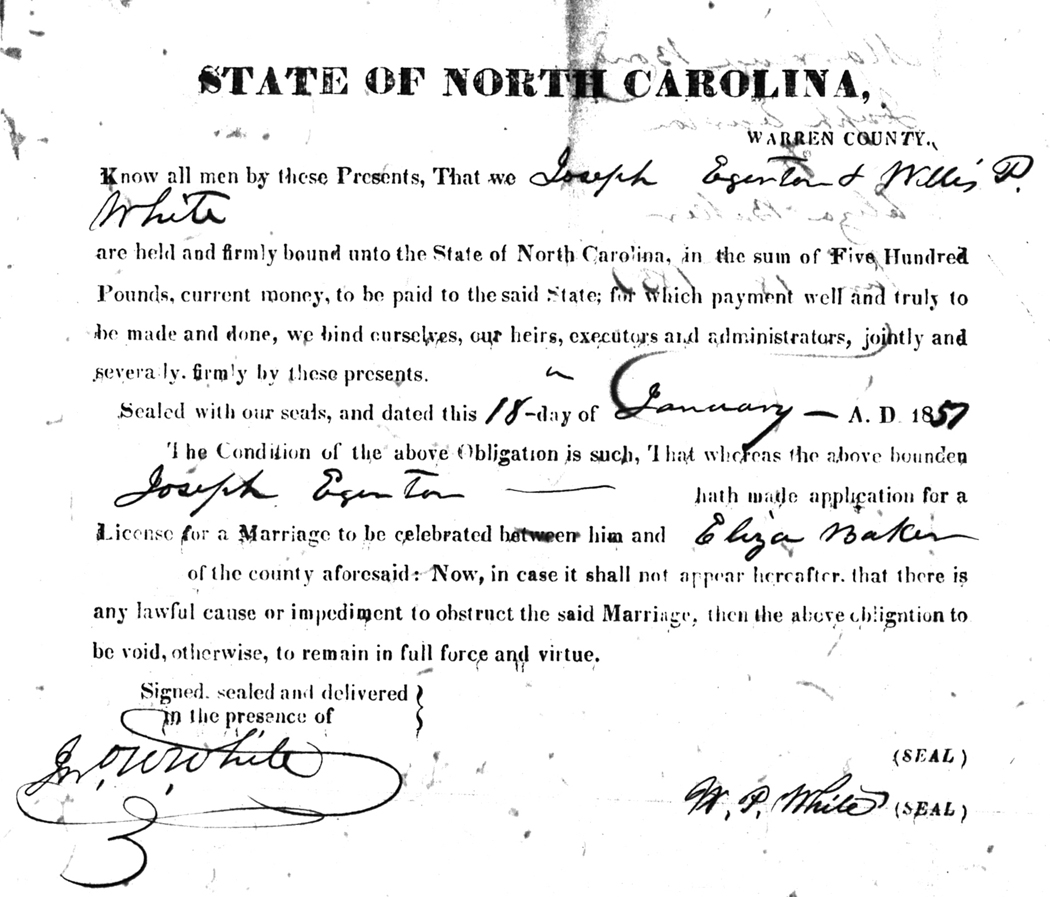 STATE OF NORTH CAROLINA,
WARREN COUNTY.
Know all men by these Presents, That we Joseph Egerton & Willis P.
White
are held and firmly bound unto the State of North Carolina, in the sum of Five Hundred
Pounds, current money, to be paid to the said State; for which payment well and truly to
be made and done, we bind ourselves, our heirs, executors and administrators, jointly and
severally. firmly by these presents.
Sealed with our seals, and dated this 18-day of January — A. D. 1857
The Condition of the above Obligation is such, That whereas the above bounden
Joseph Egerton — hath made application for a
License for a Marriage to be celebrated between him and Eliza Baker
of the county aforesaid: Now, in case it shall not appear hereafter. that there is
any lawful cause or impediment to obstruct the said Marriage, then the above obligntion to
be void, otherwise, to remain in full force and virtue.
Signed. sealed and delivered
in the presence of
Jno. W. White
(SEAL)
W. P. White (SEAL)